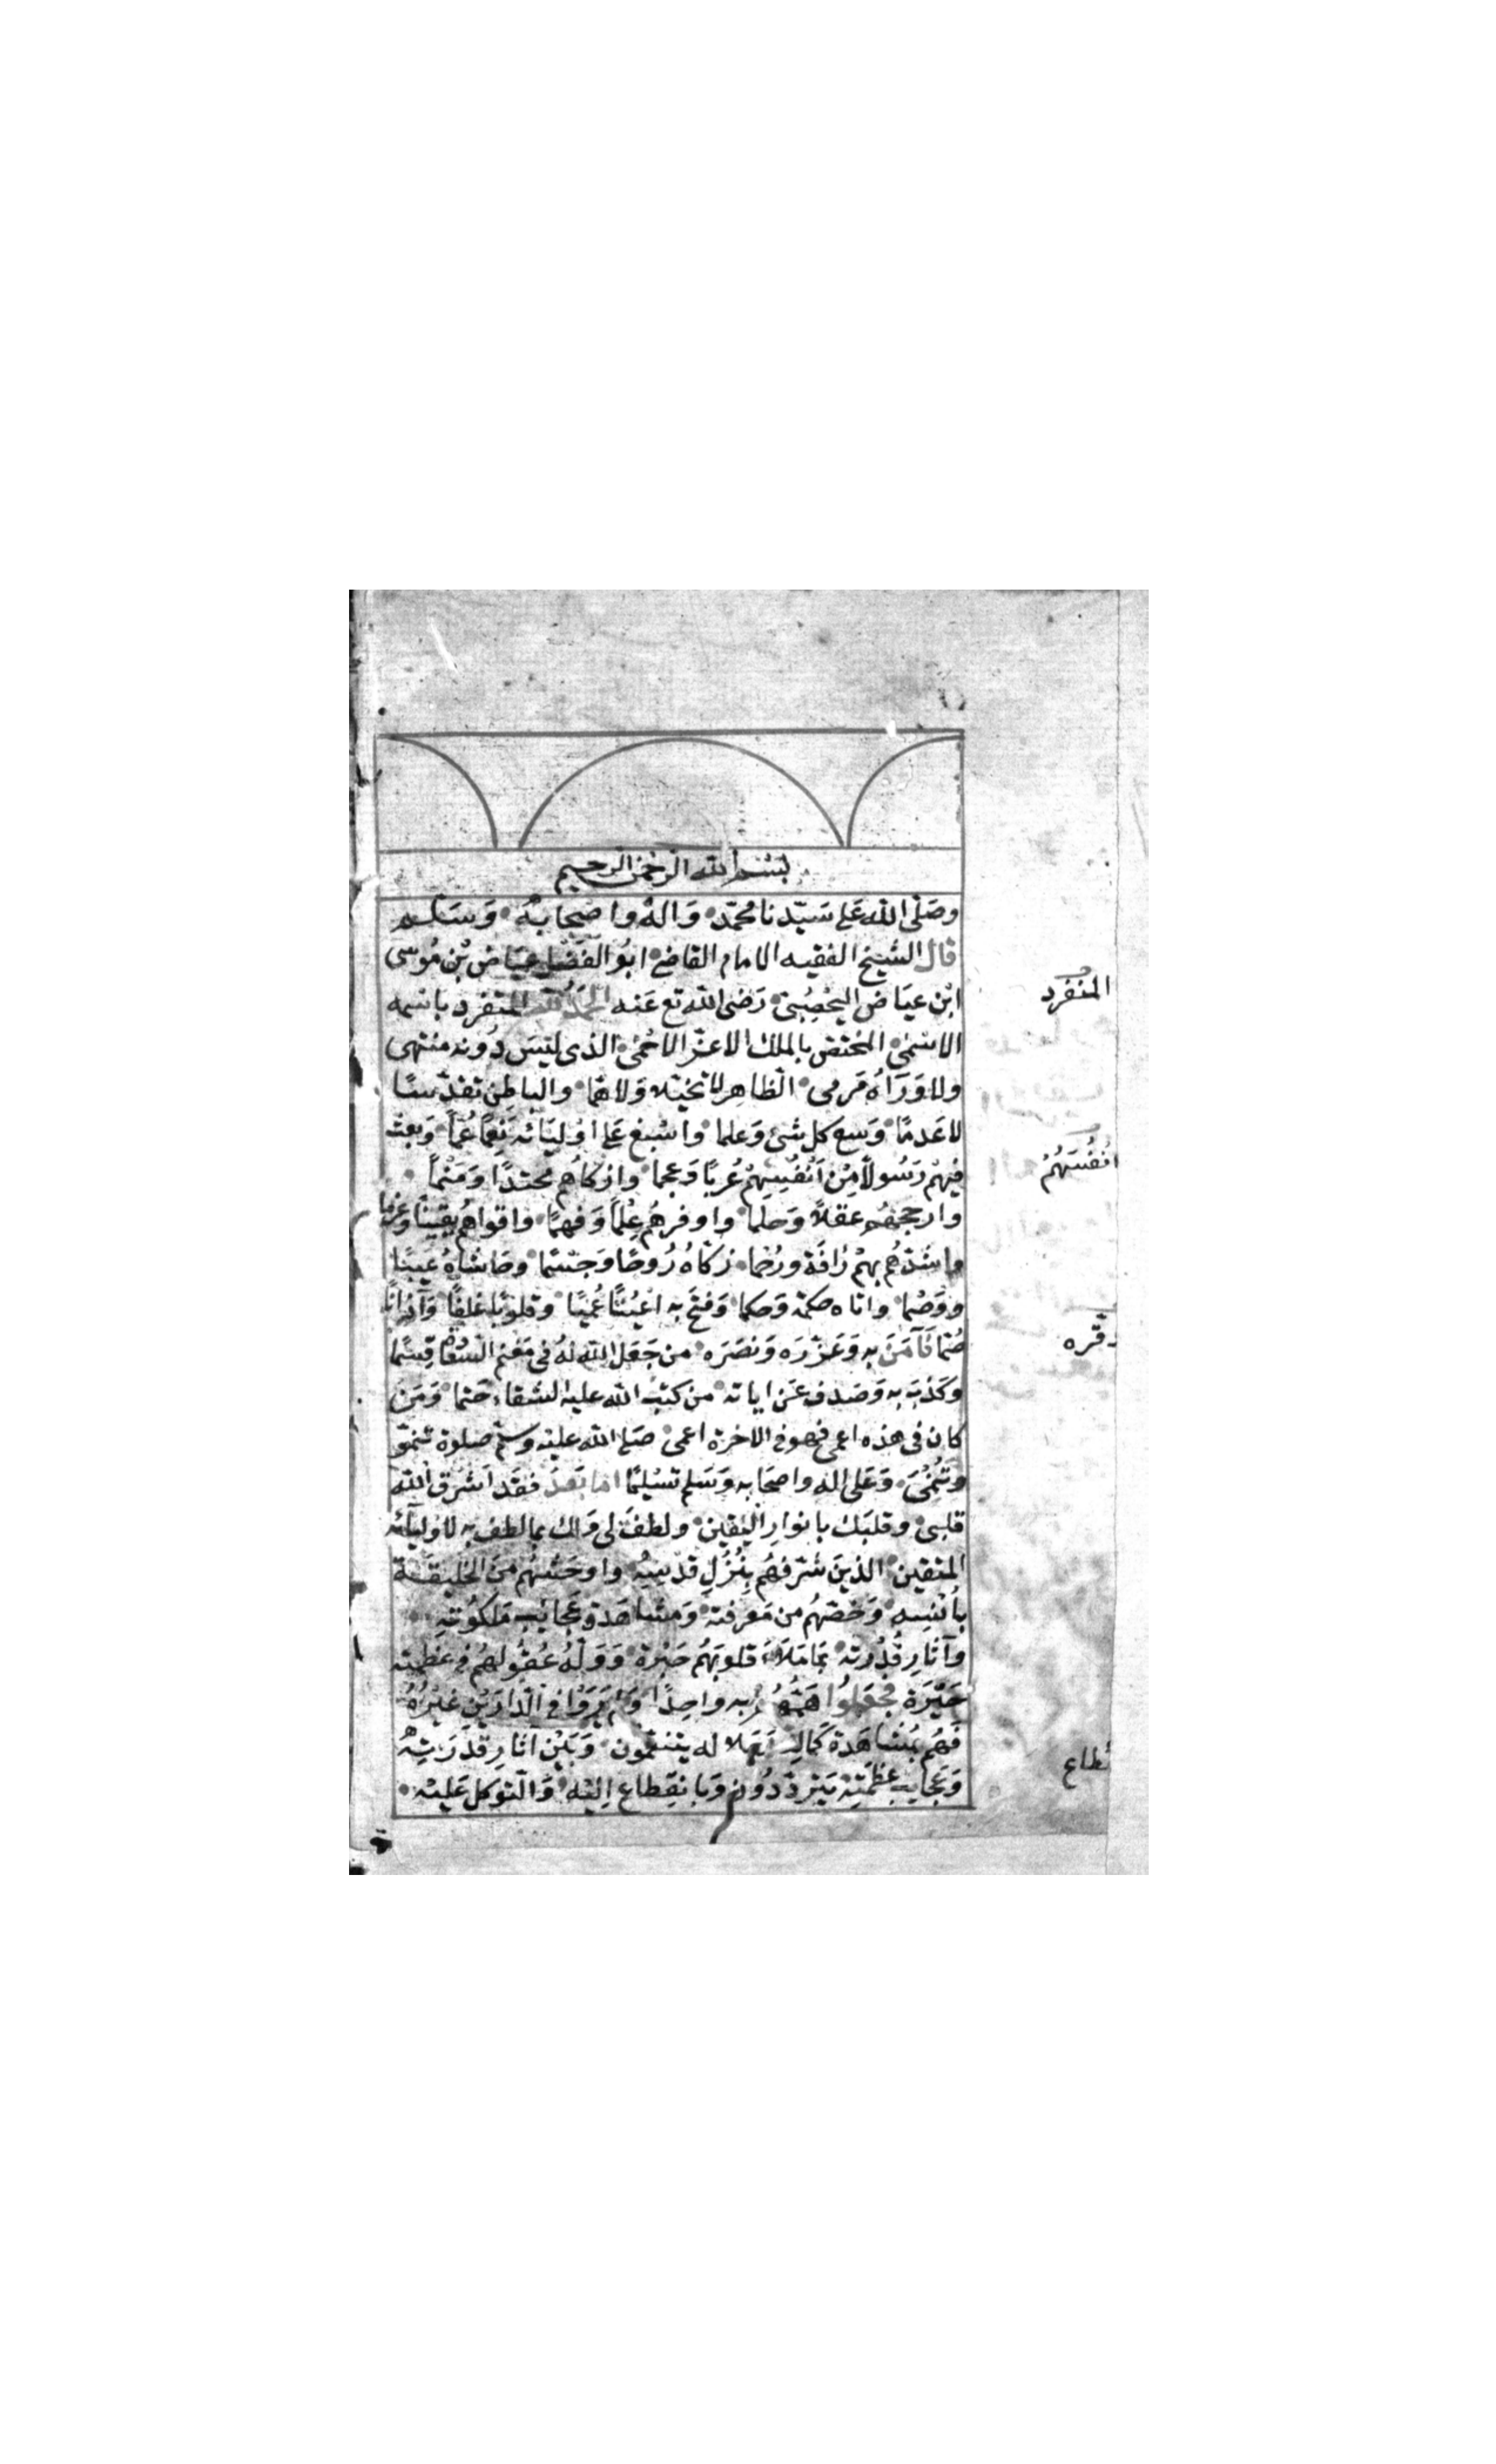 بسم الله الرحمن الرحيم
وصلى الله على سيدنا محمد واله واصحابه وسلم
قال الشيخ الفقيه الامام القاضى ابو الفضل عياض بن موسى
ابن عياض اليحصبى رضى الله تع عنه الحمد لله المتفرد باسمه
الاسمى المختص بالملك الاعز الاحمى الذى ليس دونه منتهى
ولا وراه مرمى الظاهر لا تخيلا ولا وهما والباطن تقدسا
لا عدما وسع كل شئ وعلما واسبغ على اوليائه نعما عما وبعث
فيهم رسولا من انفسهم عربا وعجما وازكاهم محتدا ومنما
وارجحهم عقلا وحلما واوفرهم علما وفهما واقواهم يقينا وعزما
واشدهم بهم رافة ورحما زكاه روحا وجسما وحاشاه عيبا
ووصما واتاه حكمة وحكما وفتح به اعينا عميا وقلوبا غلفا وآذانا
صما فآمن به وعزره ونصره من جعل الله له فى مغنم السعادة قسما
وكذب به وصدف عن اياته من كتب الله عليه الشقاء حتما ومن
كان فى هذه اعمى فهو فى الاخرة اعمى صلى الله عليه وسلم صلوة تنمو
وتنمى وعلى اله واصحابه وسلم تسليما اما بعد فقد اشرق الله
قلبى وقلبك بانوار اليقين ولطف لى ولك بما لطف به لاوليائه
المتقين الذين شرفهم بنزل قدسه واوحشهم من الخليقة
بأنسه وخصهم من معرفته ومشاهدة عجايب ملكوته
وآثار قدرته بما ملاء قلوبهم حبرة ووله عقولهم فى عظمته
حيرة فجعلوا همهم به واحدا ولم يروا فى الدارين غيره
فهم بمشاهدة كماله وجلاله يتنعمون وبين آثار قدرته
وعجايب عظمته يترددون وبانقطاع اليه والتوكل عليه
المنفرد
انفسهم
وقره